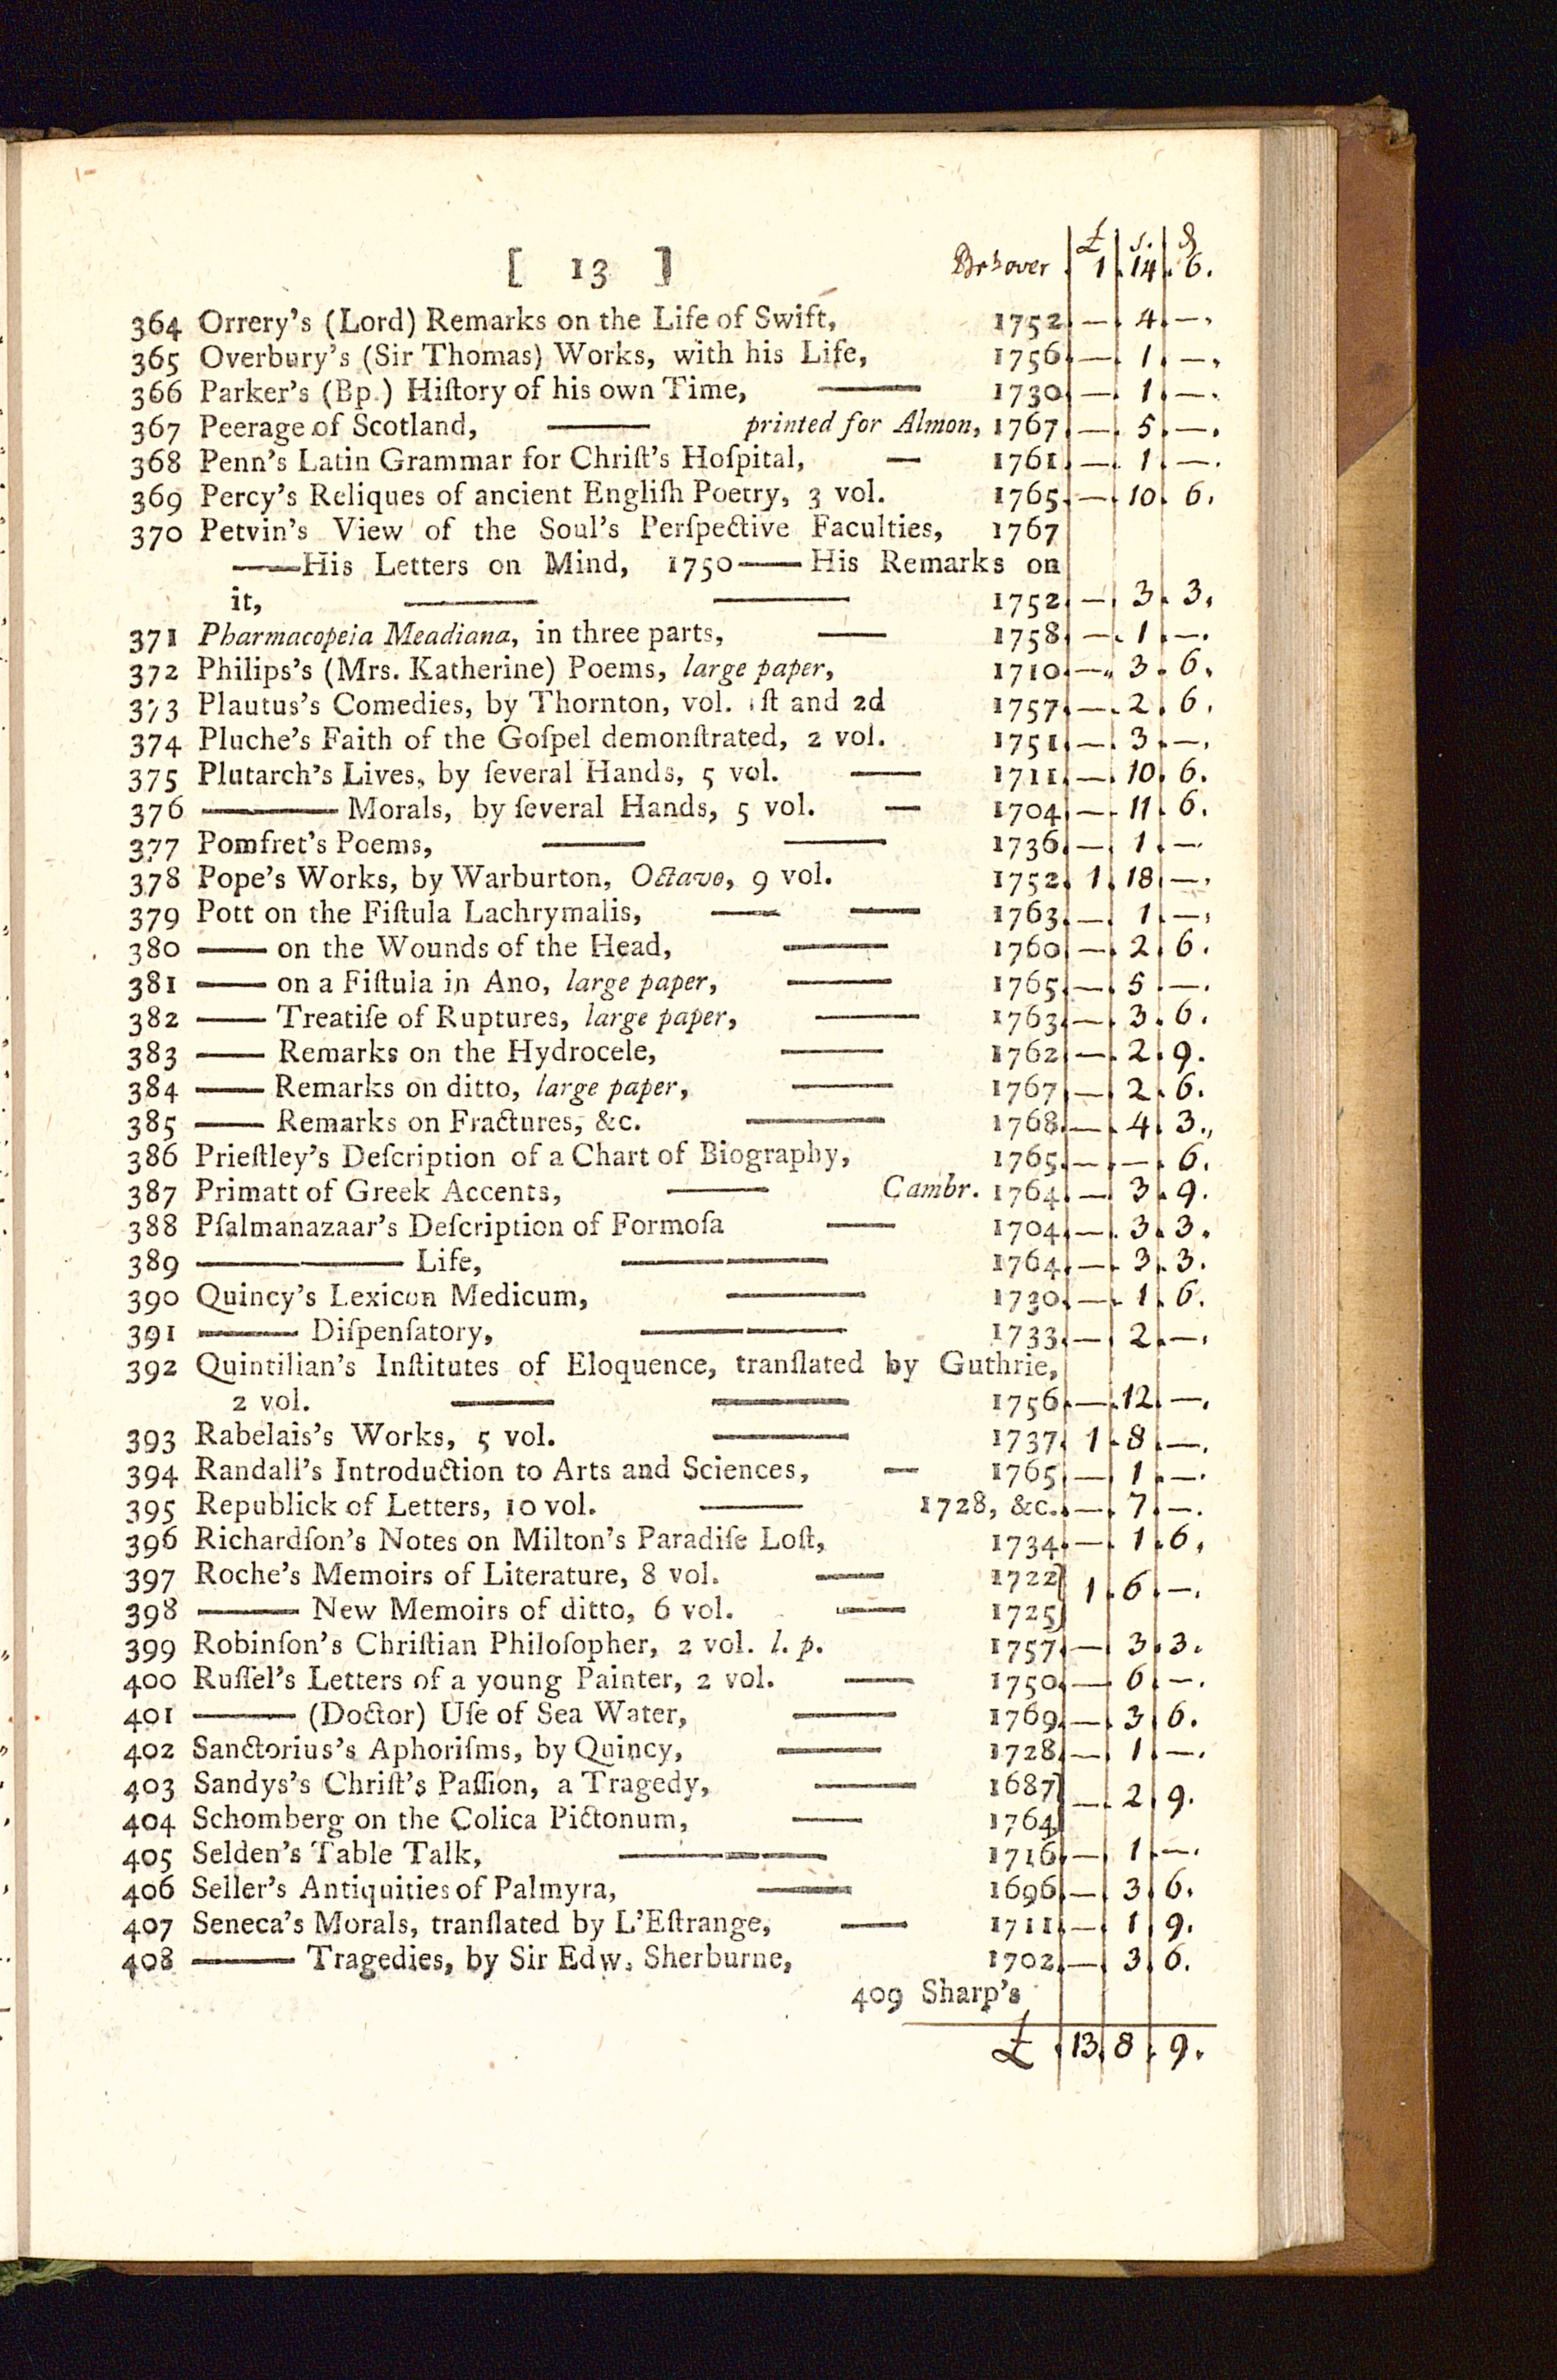 [ 13 ] Brt over £ s. d
1 . 14 . 6.
364 Orrery's (Lord) Remarks on the Life of Swift, 1752 — 4 —
365 Overbury's (Sir Thomas) Works, with his Life, 1756 — 1 —
366 Parker's (Bp.) Hiſtory of his own Time, —— 1730 — 1 —
367 Peerage of Scotland, —— printed for Almon, 1767 — 5 —
368 Penn's Latin Grammar for Chriſt's Hoſpital, — 1761 — 1 —
369 Percy's Reliques of ancient Engliſh Poetry, 3 vol. 1765 — 10 6
370 Petvin's View of the Soul's Perſpective Faculties, 1767
——His Letters on Mind, 1750——His Remarks on
it, —— —— 1752 — 3 3
371 Pharmacopeia Meadiana, in three parts, —— 1758 — 1 —
372 Philips's (Mrs. Katherine) Poems, large paper, 1710 — 3 6
373 Plautus's Comedies, by Thornton, vol. 1ſt and 2d 1757 — 2 6
374 Pluche's Faith of the Goſpel demonſtrated, 2 vol. 1751 — 3 —
375 Plutarch's Lives, by ſeveral Hands, 5 vol. —— 1711 — 10 6
376 —— Morals, by ſeveral Hands, 5 vol. — 1704 — 11 6
377 Pomfret's Poems, —— —— 1736 — 1 —
378 Pope's Works, by Warburton, Octavo, 9 vol. 1752 1 18 —
379 Pott on the Fiſtula Lachrymalis, —— —— 1763 — 1 —
380 —— on the Wounds of the Head, —— 1760 — 2 6
381 —— on a Fiſtula in Ano, large paper, —— 1765 — 5 —
382 —— Treatiſe of Ruptures, large paper, —— 1763 — 3 6
383 —— Remarks on the Hydrocele, —— 1762 — 2 9
384 —— Remarks on ditto, large paper, —— 1767 — 2 6
385 —— Remarks on Fractures, &c. —— 1768 — 4 3
386 Prieſtley's Deſcription of a Chart of Biography, 1765 — — 6
387 Primatt of Greek Accents, —— Cambr. 1764 — 3 9
388 Pſalmanazaar's Deſcription of Formoſa —— 1704 — 3 3
389 —— Life, —— 1764 — 3 3
390 Quincy's Lexicon Medicum, —— 1730 — 1 6
391 —— Diſpenſatory, —— 1733 — 2 —
392 Quintilian's Inſtitutes of Eloquence, tranſlated by Guthrie,
2 vol. —— —— 1756 — 12 —
393 Rabelais's Works, 5 vol. —— 1737 1 8 —
394 Randall's Introduction to Arts and Sciences, — 1765 — 1 —
395 Republick of Letters, 10 vol. —— 1728, &c. — 7 —
396 Richardſon's Notes on Milton's Paradiſe Loſt, 1734 — 1 6
397 Roche's Memoirs of Literature, 8 vol. —— 1722
398 —— New Memoirs of ditto, 6 vol. —— 1725 } 1 6 —
399 Robinſon's Chriſtian Philoſopher, 2 vol. l. p. 1757 — 3 3
400 Ruſſel's Letters of a young Painter, 2 vol. —— 1750 — 6 —
401 —— (Doctor) Uſe of Sea Water, —— 1769 — 3 6
402 Sanctorius's Aphoriſms, by Quincy, —— 1728 — 1 —
403 Sandys's Chriſt's Paſſion, a Tragedy, —— 1687
404 Schomberg on the Colica Pictonum, —— 1764 } — 2 9
405 Selden's Table Talk, —— 1716 — 1 —
406 Seller's Antiquities of Palmyra, —— 1696 — 3 6
407 Seneca's Morals, tranſlated by L'Eſtrange, —— 1711 — 1 9
408 —— Tragedies, by Sir Edw. Sherburne, 1702 — 3 6
409 Sharp's
£ 13 8 9